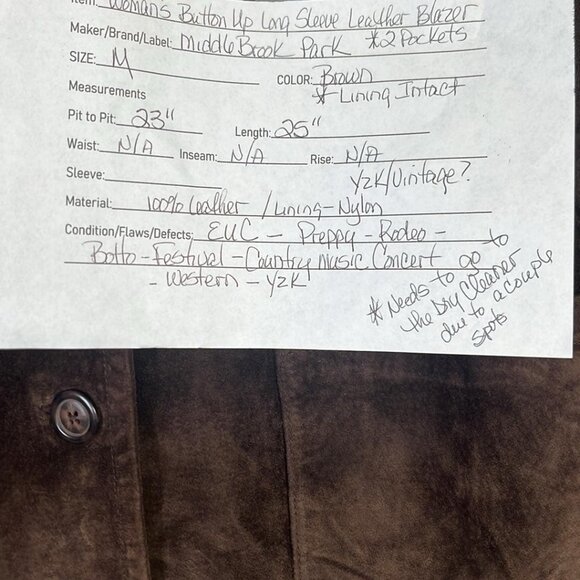 Item: Womans Button Up Long Sleeve Leather Blazer
Maker/Brand/Label: Middle Brook Park *2 Pockets
SIZE: M COLOR: Brown
* Lining Intact
Measurements
Pit to Pit: 23" Length: 25"
Waist: N/A Inseam: N/A Rise: N/A
Sleeve: Y2K/Vintage?
Material: 100% Leather / Lining - Nylon
Condition/Flaws/Defects: EUC - Preppy - Rodeo -
Boho - Festival - Country Music Concert
- Western - Y2K
* Needs to go to
the Dry Cleaner
due to a couple
spots